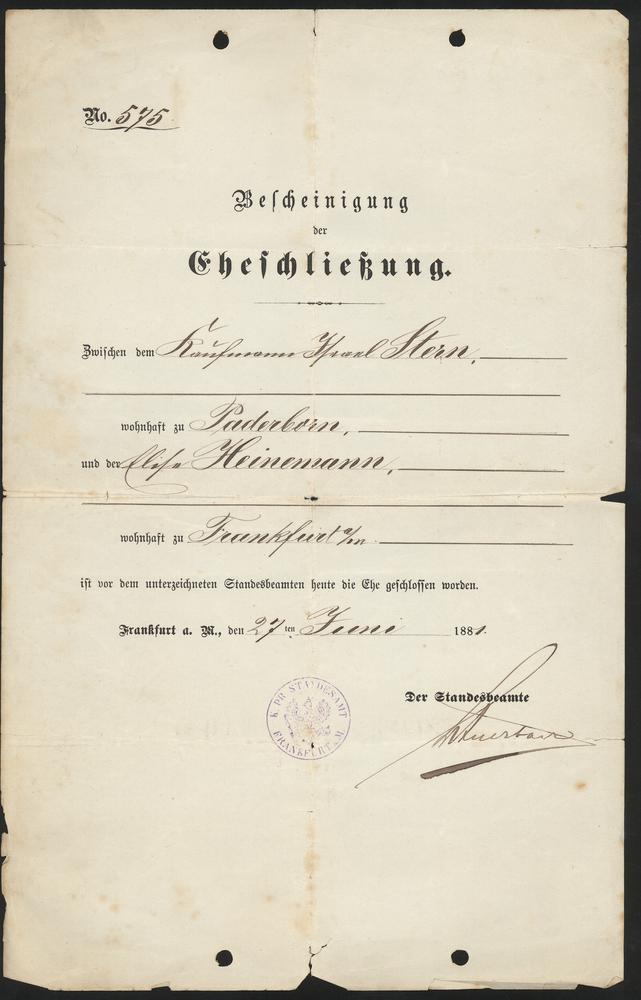 No. 575
Bescheinigung
der
Eheschließung.
Zwischen dem Kaufmann Israel Stern,
wohnhaft zu Paderborn,
und der Elise Heinemann,
wohnhaft zu Frankfurt a/m.
ist vor dem unterzeichneten Standesbeamten heute die Ehe geschlossen worden.
Frankfurt a. M., den 27 ten Juni 1881.
Der Standesbeamte
K. PR. STANDESAMT
FRANKFURT a. M.